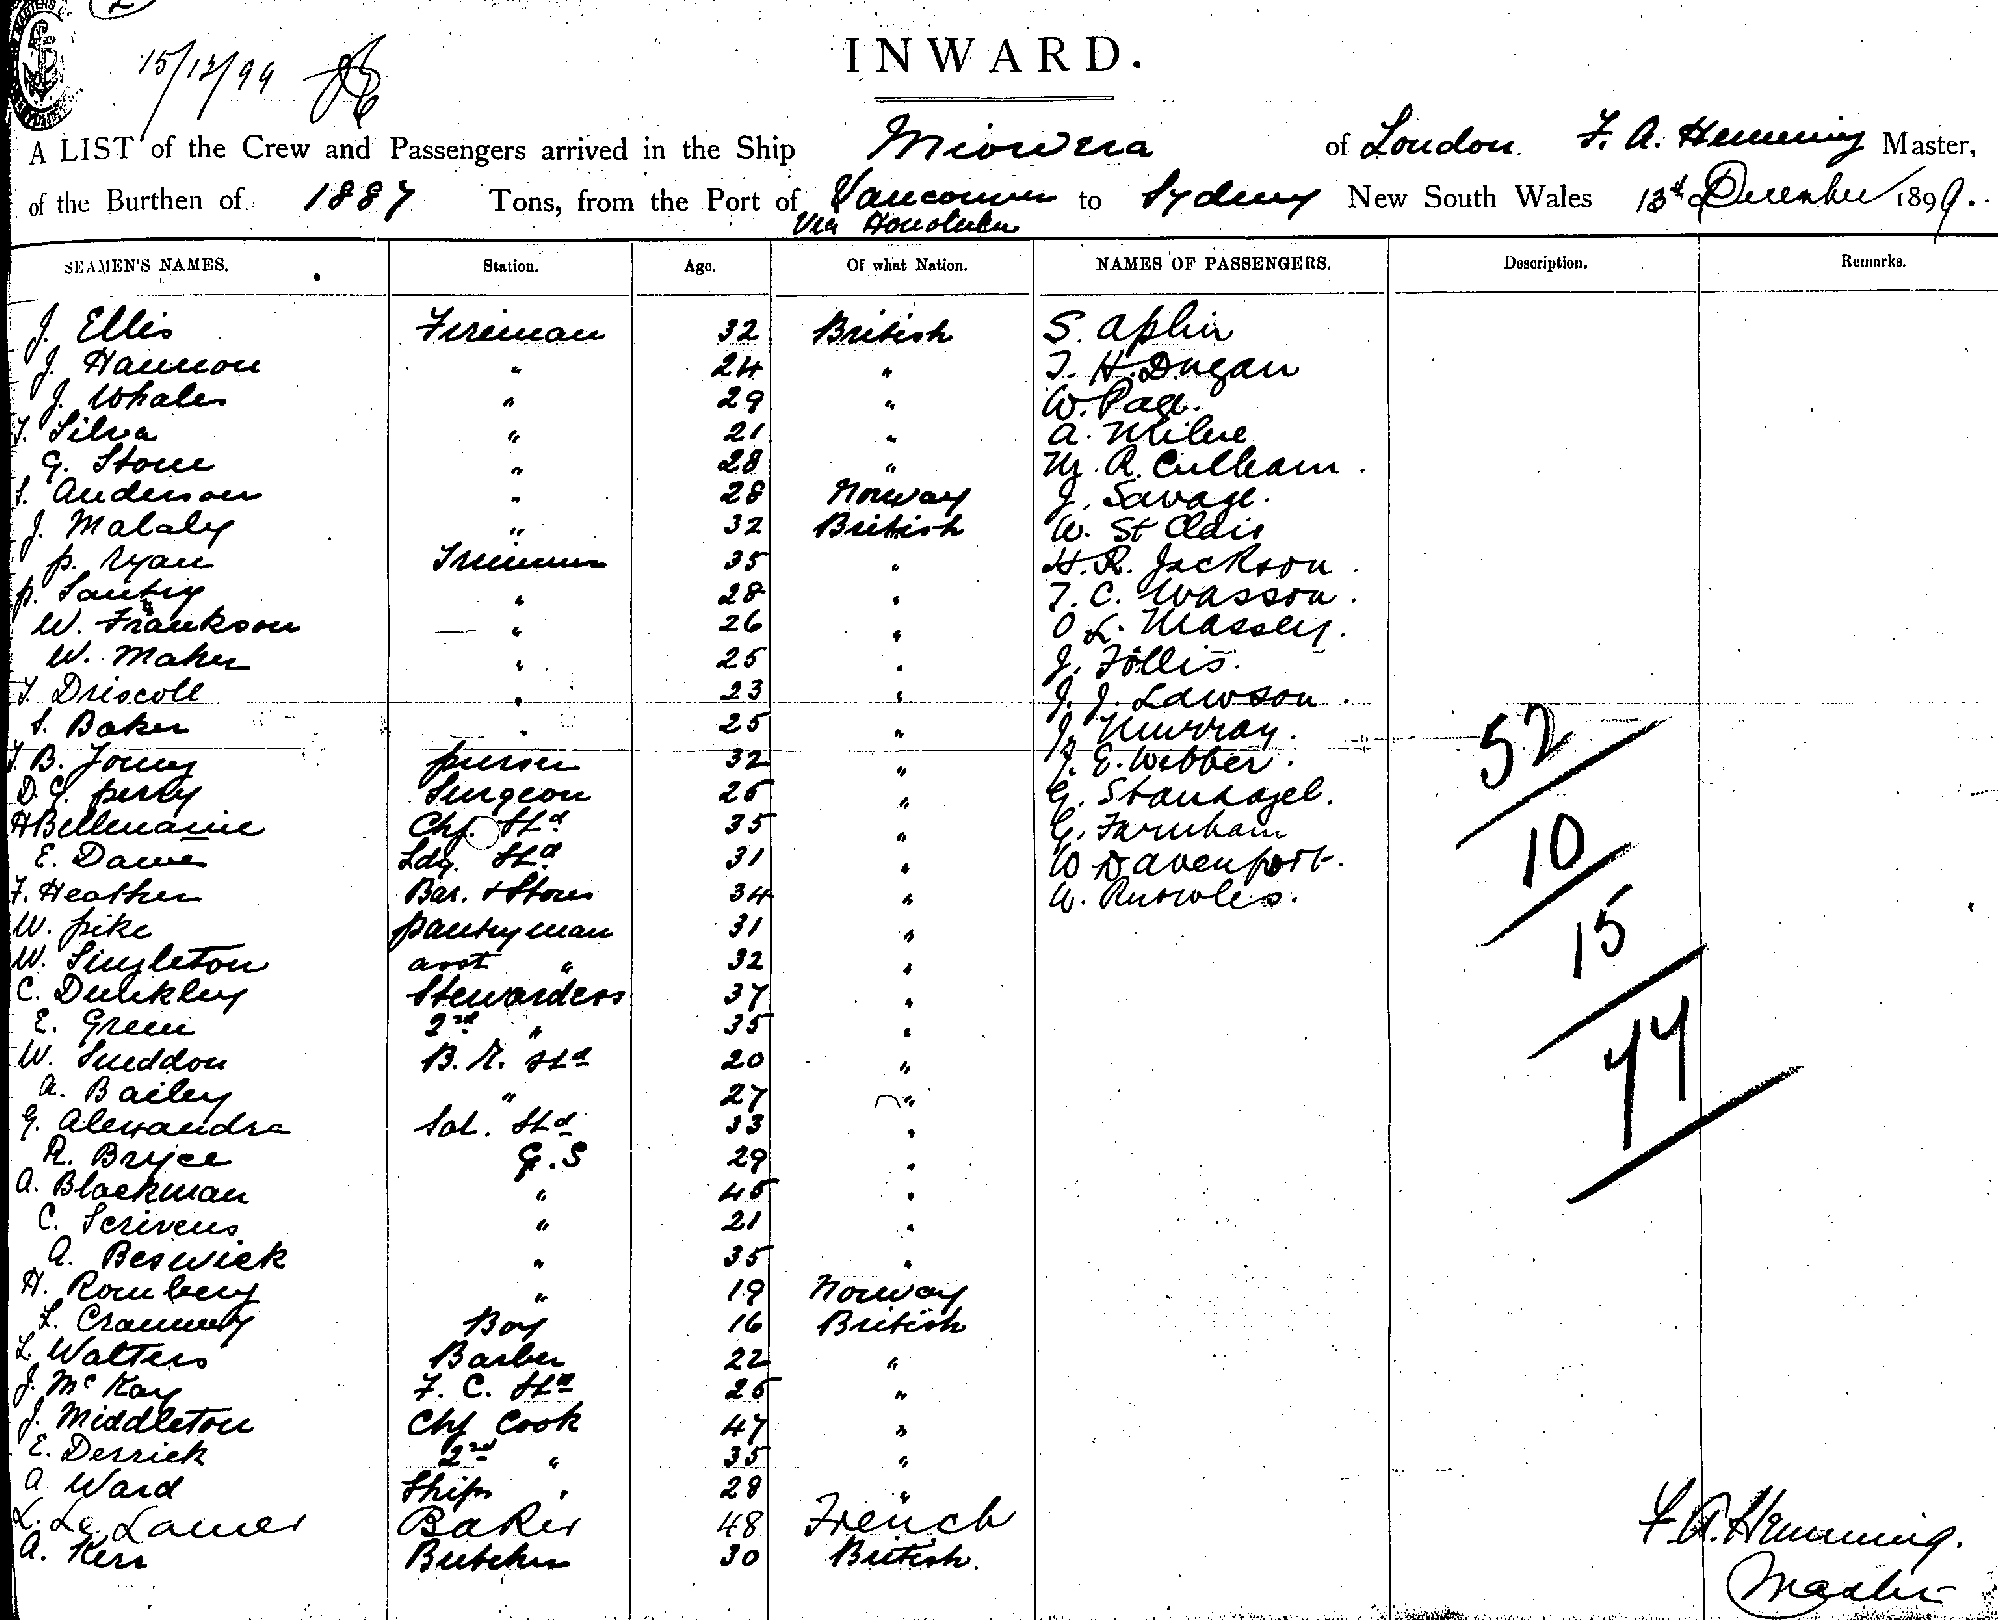 15/12/99
INWARD.
A LIST of the Crew and Passengers arrived in the Ship Miowera of London. F. A. Hemming Master,
of the Burthen of 1887 Tons, from the Port of Vancouver to Sydney New South Wales 13th December 1899.
Via Honolulu
SEAMEN'S NAMES. Station. Age. Of what Nation. NAMES OF PASSENGERS. Description. Remarks.
J. Ellis Fireman 32 British S. Aplin
J. Hannon " 24 " T. H. Dugan
J. Whales " 29 " W. Page.
T. Silva " 21 " A. Milne
G. Stone " 28 " M. R. Culham.
S. Anderson " 28 Norway J. Savage.
J. Malaly " 32 British W. St Clair
P. Ryan Trimmer 35 " H. R. Jackson.
P. Santry " 28 " T. C. Wasson.
W. Frankson " 26 " O L. Massey.
W. Maher " 25 " J. Follis.
T. Driscoll " 23 " J. J. Lawson.
S. Baker " 25 " J. Murray.
T. B. Young purser 32 " J. E. Webber.
D. G. perry Surgeon 26 " G. Stanhagel.
H Bellmaine Chf. Std 35 " G. Farnham
E. Dawe Ldg. Std 31 " W Davenport.
F. Heather Bar. & Stores 34 " A. Knowles.
W. pike pantryman 31 "
W. Singleton asst " 32 "
C. Dunkley Stewardess 37 "
E. Green 2nd " 35 "
W. Sneddon B. R. Std 20 "
A. Bailey " 27 "
G. Alexandra Sal. Std 33 "
R. Bryce G. S 29 "
A. Blackman " 45 "
C. Scrivens " 21 "
A. Beswick " 35 "
H. Romberg " 19 Norway
L. Crammey Boy 16 British
L. Walters Barber 22 "
J. McKay F. C. Std 26 "
J. Middleton Chf Cook 47 "
E. Derrick 2nd " 35 "
A Ward Ships " 28 "
L. Le Lamer Baker 48 French
A. Kerr Butcher 30 British.
52
10
15
77
F. A. Hemming.
Master